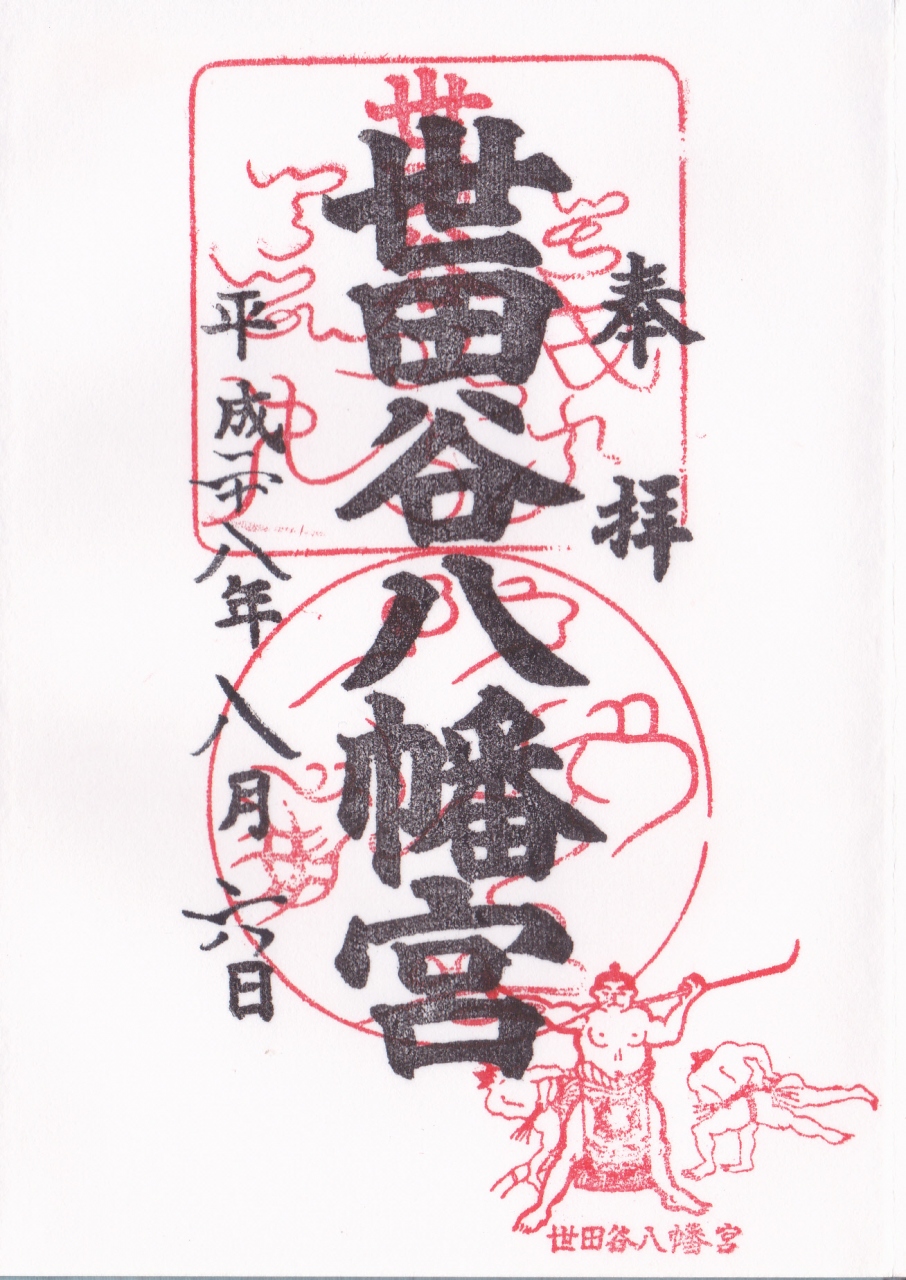 奉拝
世田谷八幡宮
平成二十八年八月六日
世田谷八幡宮